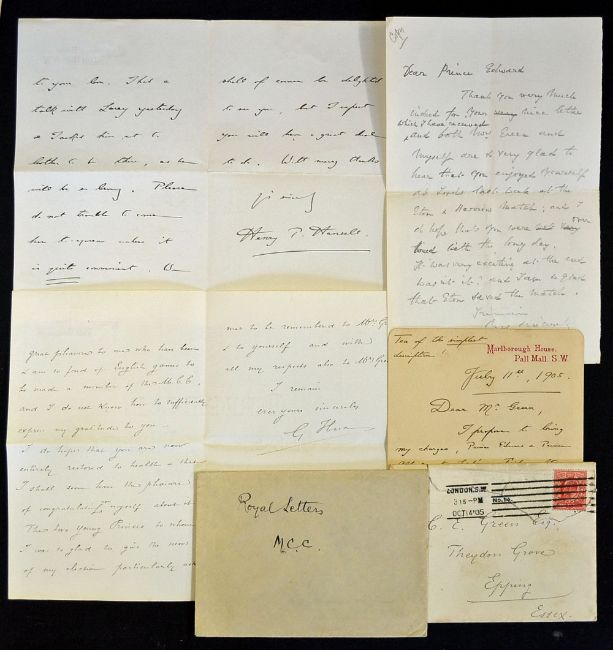 to you
talk with Lacey yesterday
do not trouble to come
is quite convenient. We
shall of course be delighted
to see you, but I expect
you will have a great deal
to do. With many thanks
Henry P. Hansell
Copy
Dear Prince Edward
Thank you very much
indeed for your very nice letter
which I have received
and both Mrs Green and
myself are so very glad to
hear that you enjoyed yourself
at Lords last week at the
Eton & Harrow Match, and I
do hope that you were not very over
tired with the long day.
It was very exciting at the end
was it? and I am so glad
that Eton saved the match.
great pleasure to me who has been
& am so fond of English games to
be made a member of the M.C.C.
and I do not know how to sufficiently
express my gratitude to you.
I do hope that you are now
entirely restored to health &
I shall soon have the pleasure
of congratulating myself about it
The two young Princes to whom
I was so glad to give the news
of my election particularly ask
me to be remembered to Mrs
& to yourself and with
all my respects also to Mrs
I remain
ever yours sincerely
Tea of the simplest
description!
Marlborough House,
Pall Mall. S.W.
July 11th, 1905.
Dear Mr Green,
I propose to bring
my charges, Prince Edward & Prince
Royal Letters
M.C.C.
LONDON. S.W.
3 15-PM
OCT 14 05
C. E. Green Esq.
Theydon Grove
Epping
Essex